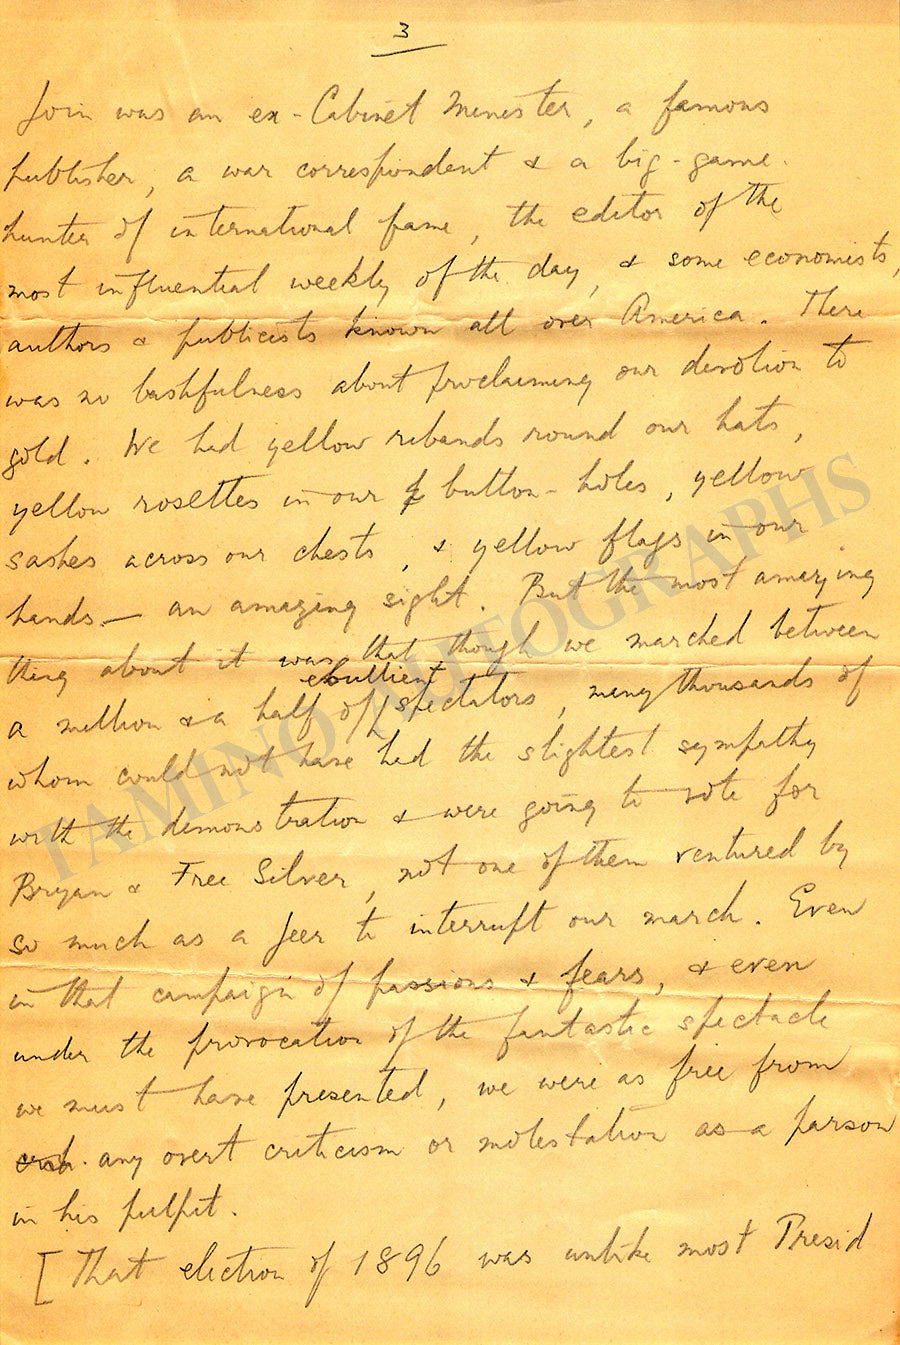 3
Join was an ex-Cabinet Minister, a famous
publisher, a war correspondent & a big-game
hunter of international fame, the editor of the
most influential weekly of the day, & some economists,
authors & publicists known all over America. There
was no bashfulness about proclaiming our devotion to
gold. We had yellow ribands round our hats,
yellow rosettes in our button-holes, yellow
sashes across our chests, & yellow flags in our
hands — an amazing sight. But the most amazing
thing about it was that though we marched between
a million & a half of ebullient spectators, many thousands of
whom could not have had the slightest sympathy
with the demonstration & were going to vote for
Bryan & Free Silver, not one of them ventured by
so much as a jeer to interrupt our march. Even
in that campaign of passions & fears, & even
under the provocation of the fantastic spectacle
we must have presented, we were as free from
any overt criticism or molestation as a parson
in his pulpit.
[That election of 1896 was unlike most Presid
TAMINO AUTOGRAPHS